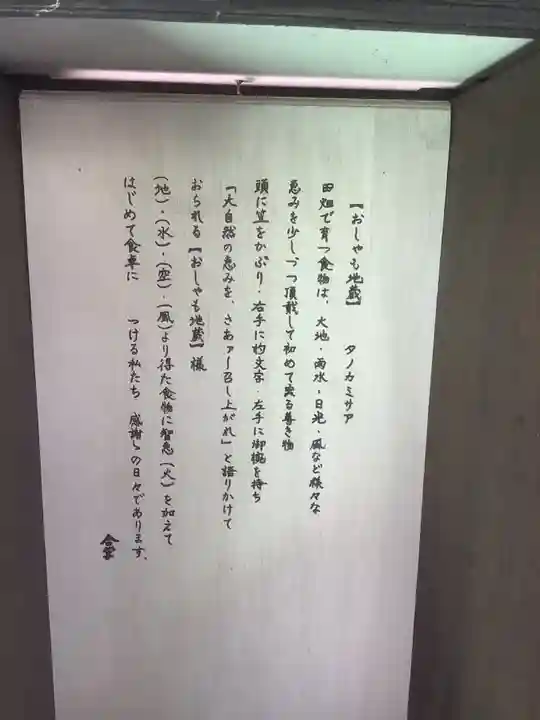 【おしゃも地蔵】 タノカミサア
田畑で育つ食物は、大地・雨水・日光・風など様々な
恵みを少しづつ頂戴して初めて実る尊き物
頭に笠をかぶり・右手に杓文字・左手に御椀を持ち
「大自然の恵みを、さあァー召し上がれ」と語りかけて
おられる【おしゃも地蔵】様
(地)・(水)・(空)・(風)より得た食物に智恵(火)を加えて
はじめて食卓に つける私たち 感謝々の日々であります、
合掌